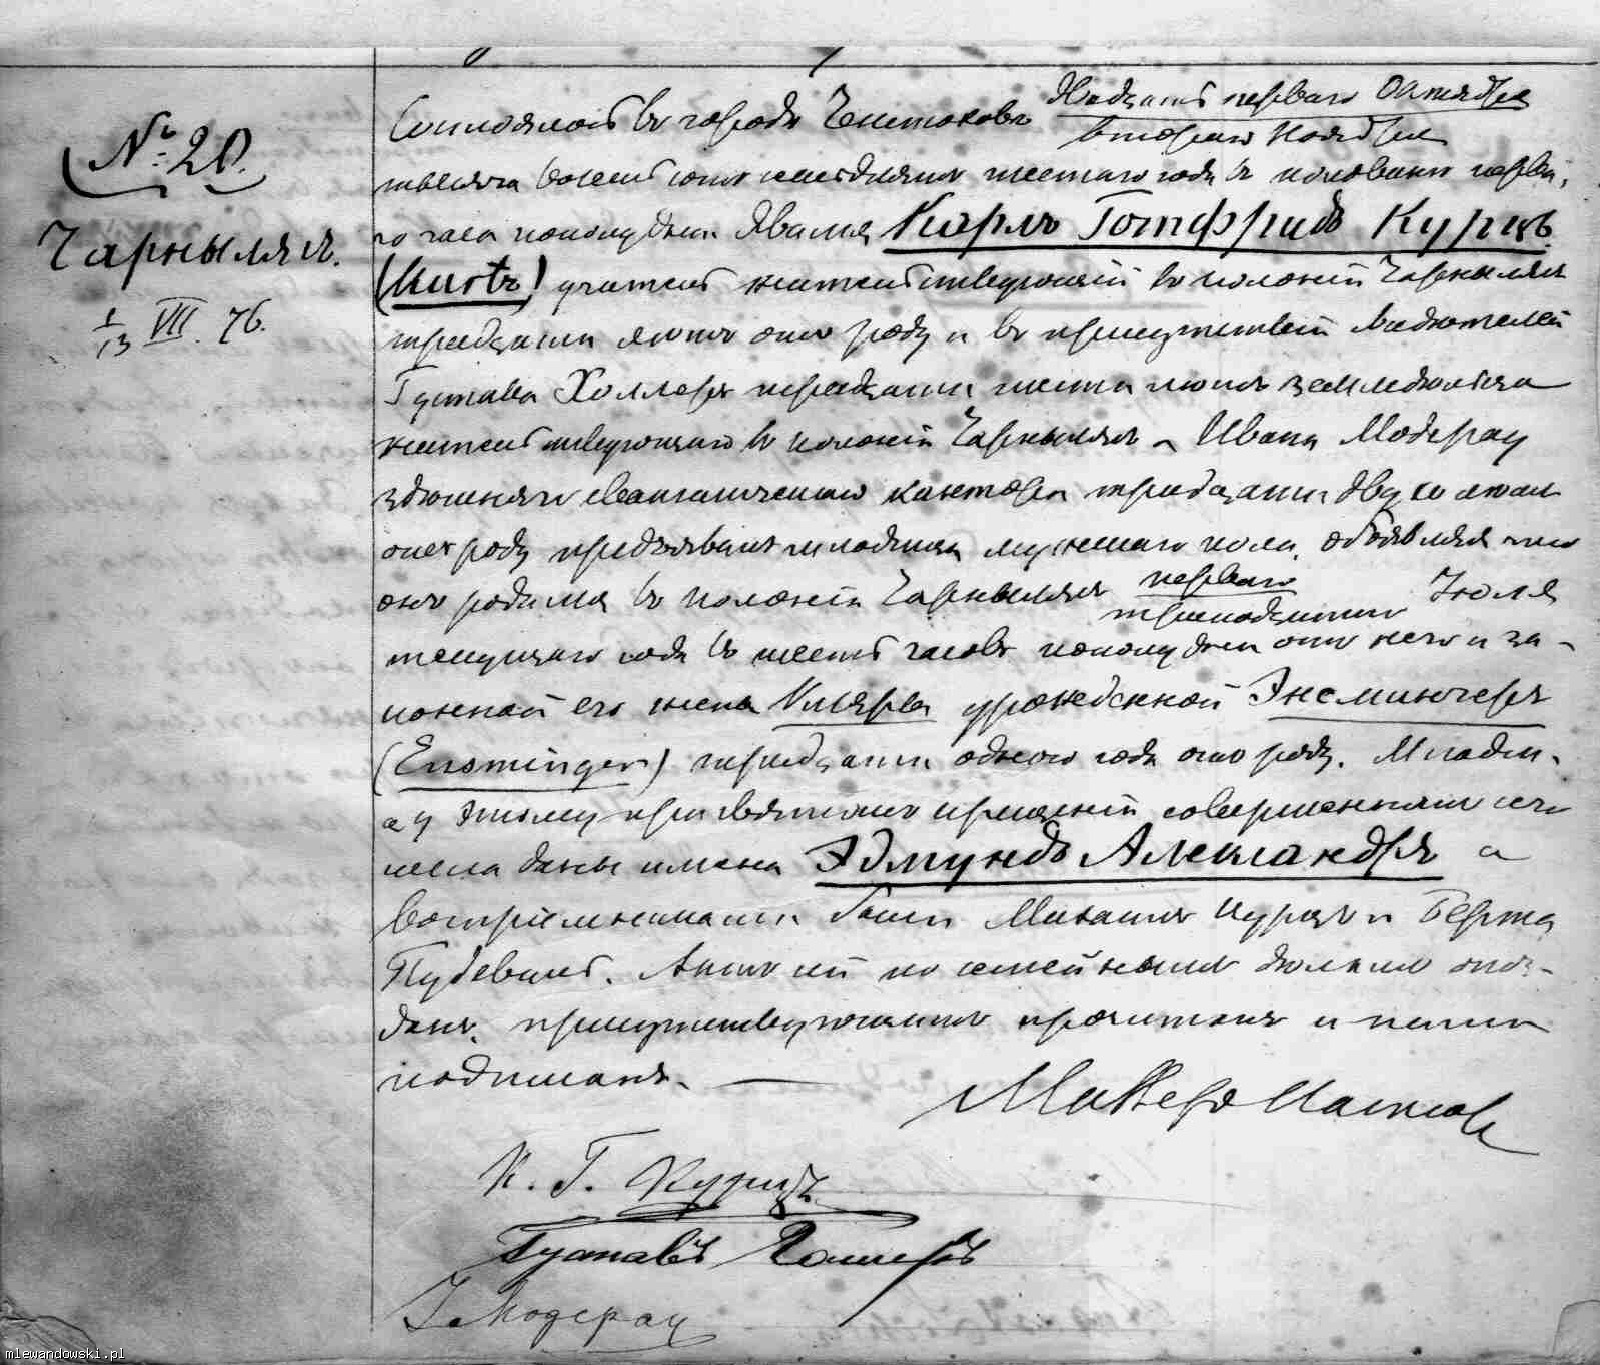 № 20.
Чарнылясъ.
1/13 VII. 76.
Состоялось въ городѣ Ченстоховѣ Двадцать перваго Октября
втораго Ноября
тысяча восемьсотъ семьдесятъ шестаго года въ половинѣ перва-
го часа пополудни Явился Карлъ Готфридъ Курцъ
(Kurtz) учитель жительствующій въ колоніи Чарнылясъ
тридцати лѣтъ отъ роду и въ присутствіи свидѣтелей
Густава Холлеръ тридцати шести лѣтъ земледѣльца
жительствующаго въ колоніи Чарнылясъ и Ивана Модерау
здѣшняго евангелическаго кантора тридцати двухъ лѣтъ
отъ роду предъявилъ младенца мужескаго пола, объявляя что
онъ родился въ колоніи Чарнылясъ перваго Іюля
тринадцатаго
текущаго года въ шесть часовъ пополудни отъ него и за-
конной его жены Клары урожденной Энсмингеръ
(Ensminger) тридцати одного года отъ роду. Младен-
цу этому при святомъ крещеніи совершенномъ сего
числа даны имена Эдмундъ Александръ а
воспріемниками были Михаилъ Курцъ и Берта
Актъ сей по семейнымъ дѣламъ опоз-
данъ, присутствующимъ прочитанъ и нами
подписанъ. —
К. Г. Курцъ
Густавъ Холлеръ
І. Модерау
mlewandowski.pl